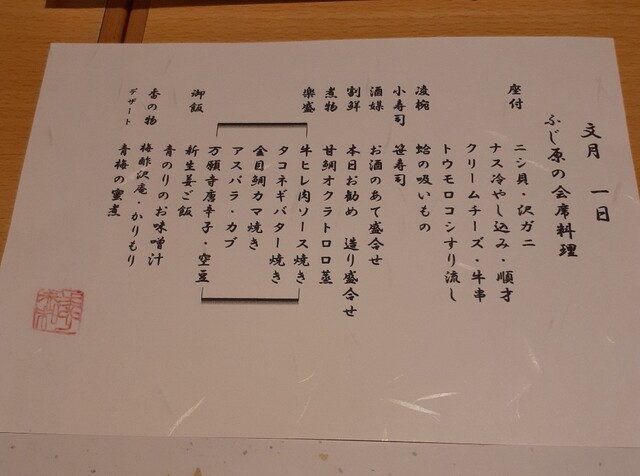 文月 一日
ふじ原の会席料理
座付 ニシ貝・沢ガニ
ナス冷やし込み・順才
クリームチーズ・牛串
トウモロコシすり流し
凌椀 蛤の吸いもの
小寿司 笹寿司
酒媒 お酒のあて盛合せ
割鮮 本日お勧め 造り盛合せ
煮物 甘鯛オクラトロロ蒸
楽盛 牛ヒレ肉ソース焼き
タコネギバター焼き
金目鯛カマ焼き
アスパラ・カブ
万願寺唐辛子・空豆
御飯 新生姜ご飯
青のりのお味噌汁
香の物 梅酢沢庵・かりもり
デザート 青梅の蜜煮